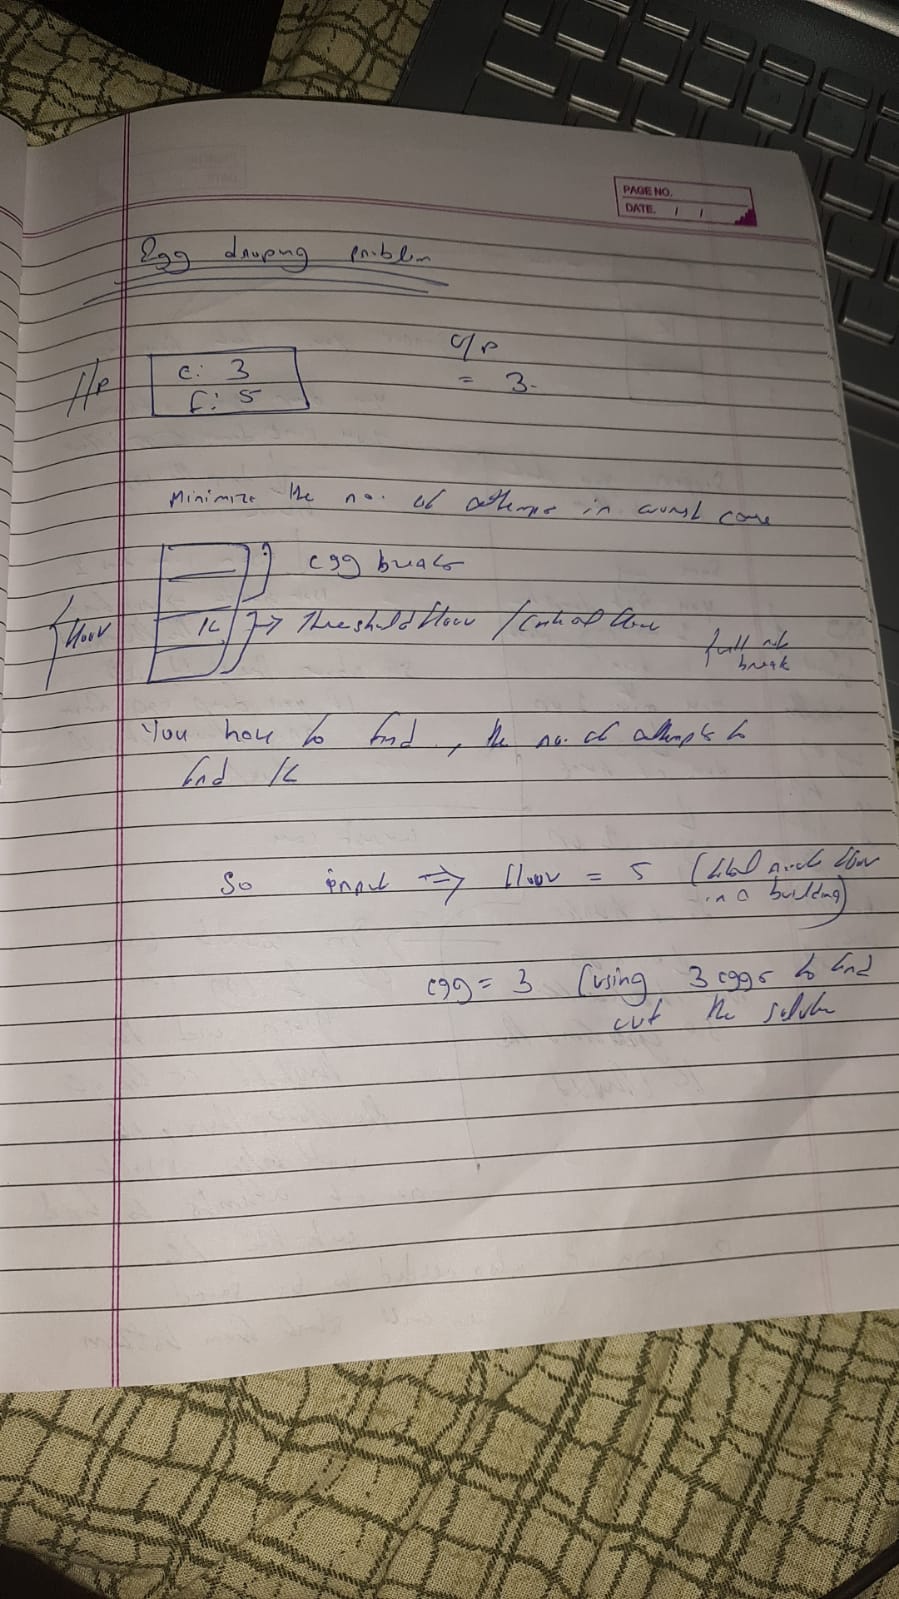 PAGE NO.
DATE. / /
Egg droping problem
I/P
e: 3
f: 5
O/P
= 3.
Minimize the no. of attemps in worst case
egg breaks
floor
K
→ Threshold floor / Critical floor
full not
break
You have to find, the no. of attempts to
find K
So input ⇒ floor = 5 (total much floor
in a building)
egg = 3 (using 3 eggs to find
out the solution